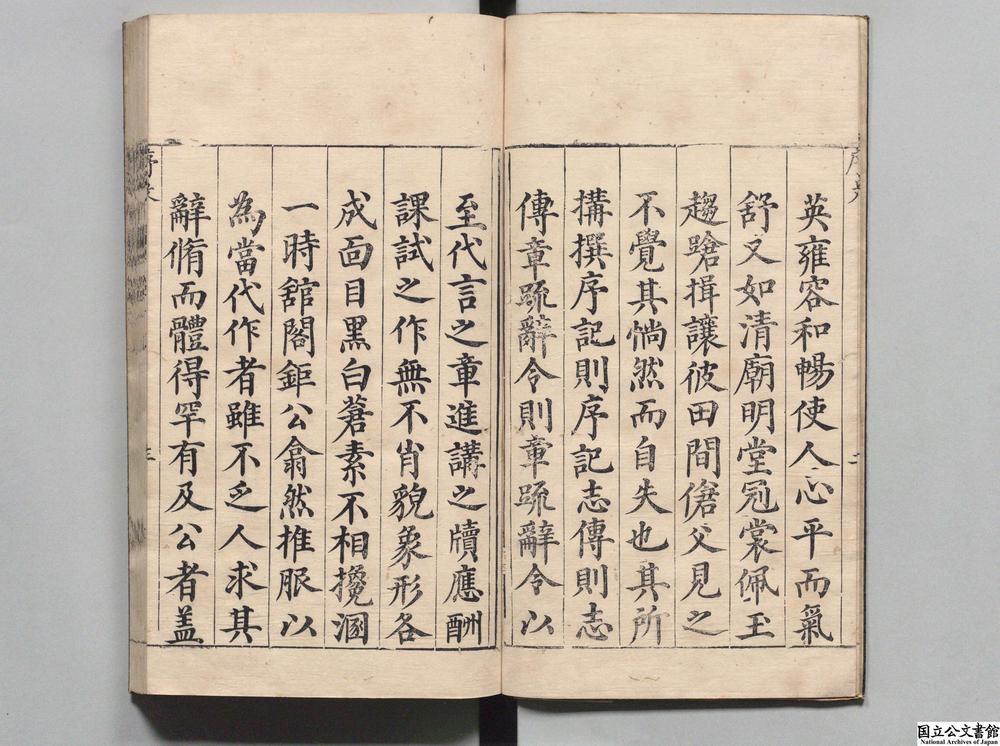 英雍容和暢使人心平而氣
舒又如清廟明堂冠裳佩玉
趨蹌揖讓彼田間傖父見之
不覺其惝然而自失也其所
搆撰序記則序記志傳則志
傳章疏辭令則章疏辭令以
至代言之章進講之牘應酬
課試之作無不肖貌象形各
成面目黑白蒼素不相攙溷
一時舘閣鉅公翕然推服以
為當代作者雖不乏人求其
辭脩而體得罕有及公者盖
国立公文書館
National Archives of Japan